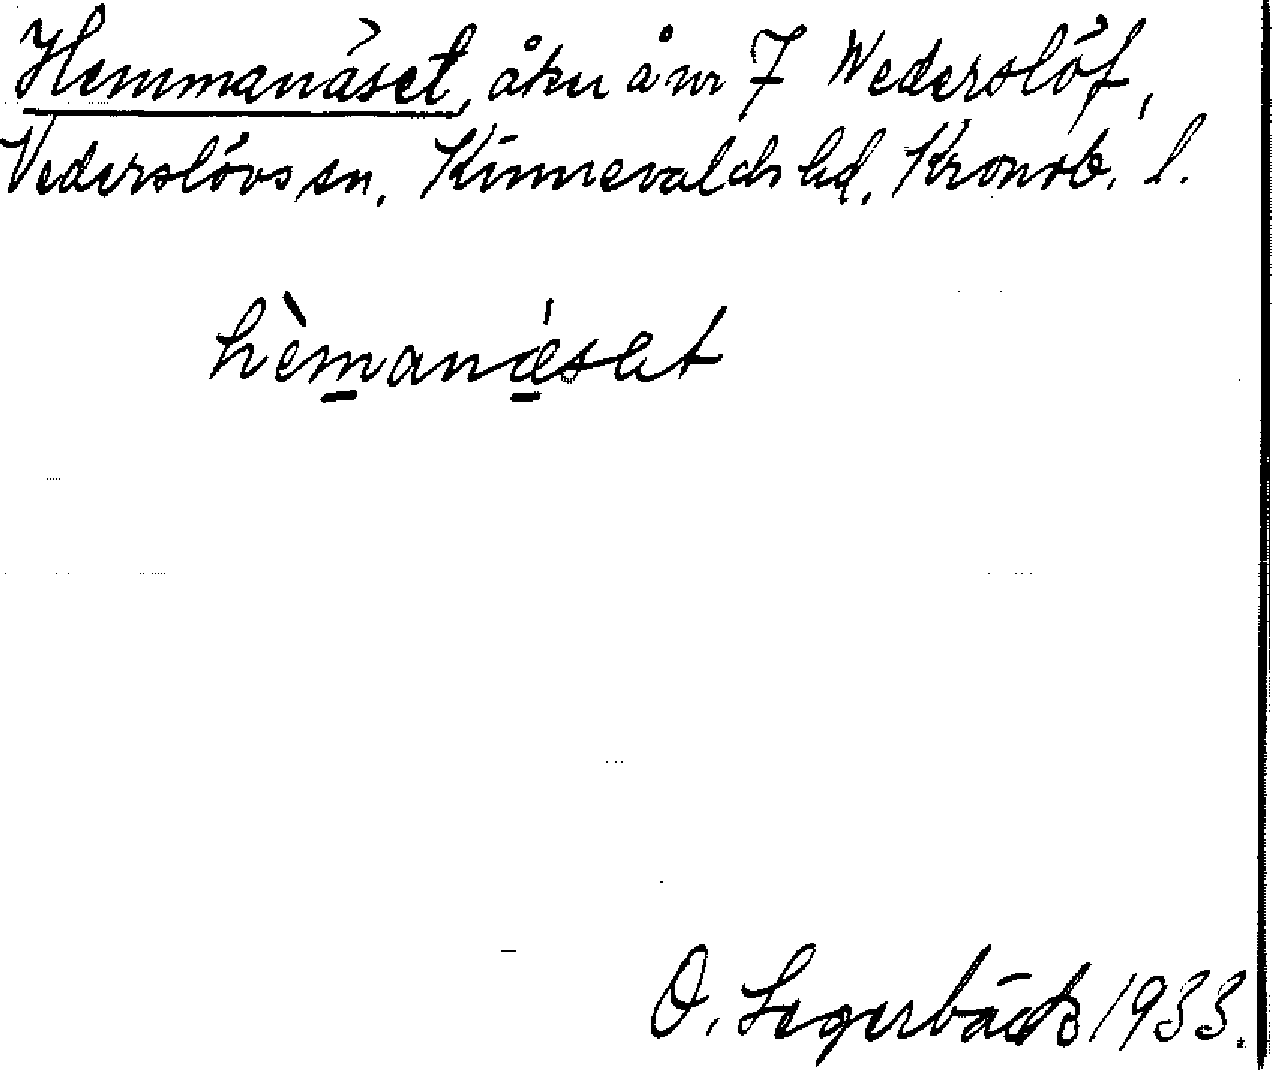 Hemmanäset, åker å nr 7 Wederslöf,
Vederslövs sn. Kinnevalds hd. Kronob. l.
hèmanæset
O. Segerbäck 1933.